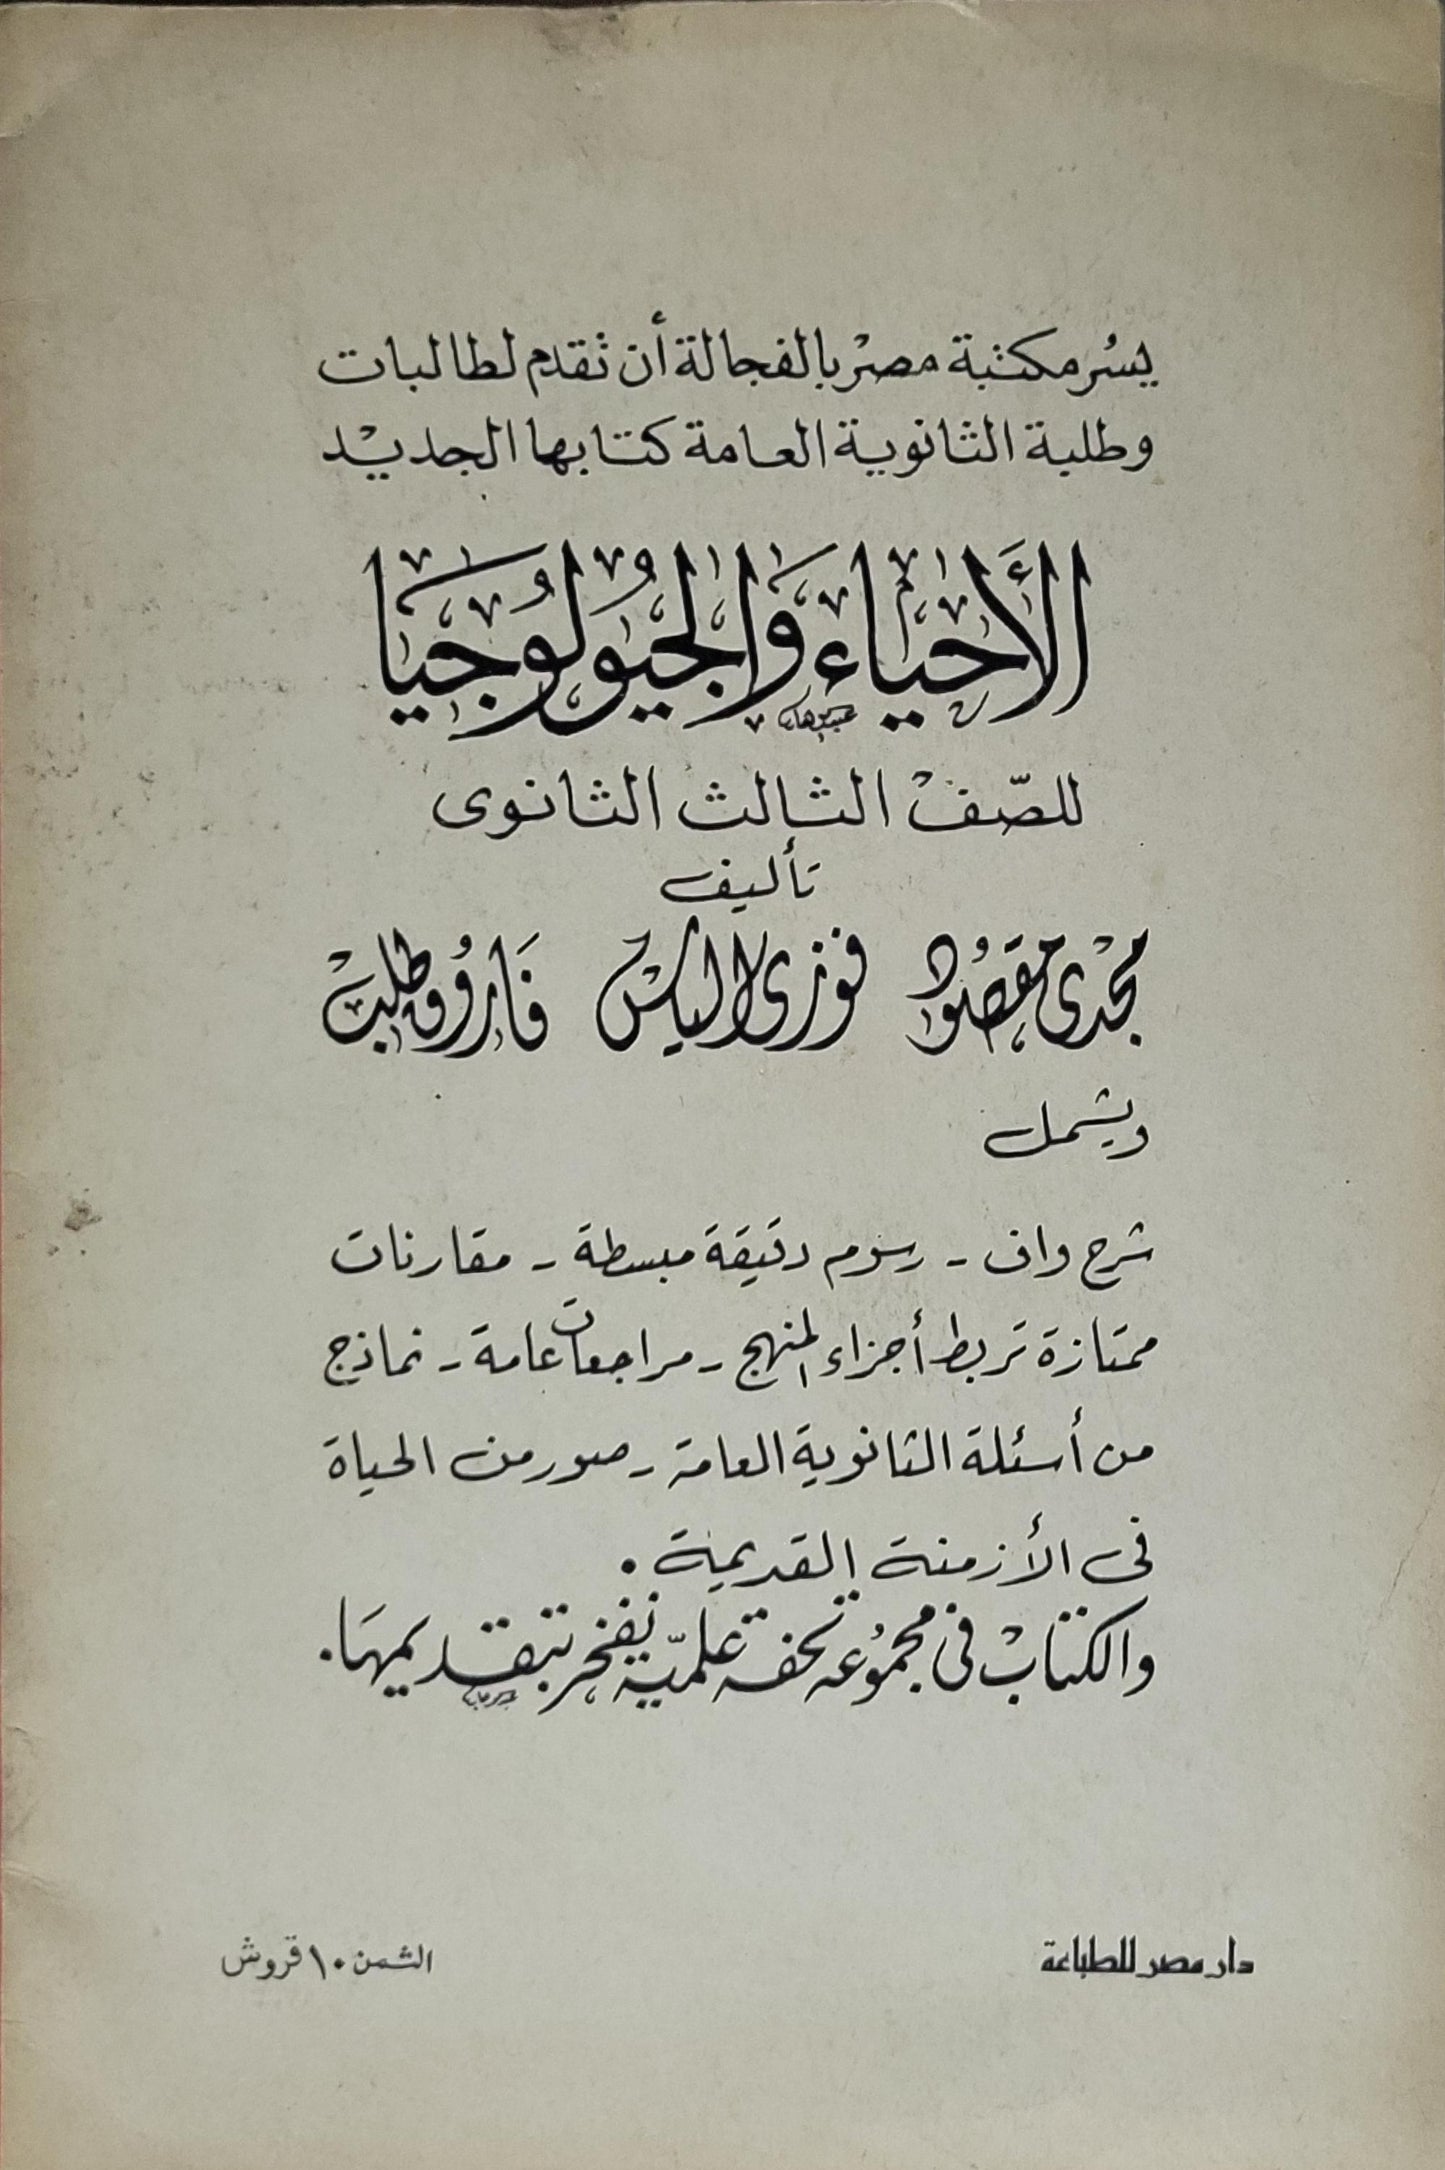 يسُر مكتبة مصْر بالفجالة أن تقدم لطالبات
وطلبة الثانوية العامة كتابها الجديْد
الأَحياء وَالجيُولوُجيَا
للصّفْ الثالث الثانوى
تأليف
مجْدى مقصُود فوزى الياسْ فَاروُق طلبْ
ويشمل
شرح واف - رسوم دقيقة مبسطة - مقارنات
ممتازة تربط أجزاء المنهج - مراجعات عامة - نماذج
من أسئلة الثانوية العامة - صور من الحياة
فى الأزمنة القديمة .
والكتابْ فى مجموُعه تحفة علميّة نفخر بتقديمهَا .
دار مصر للطباعة الثمن ١٠ قروش